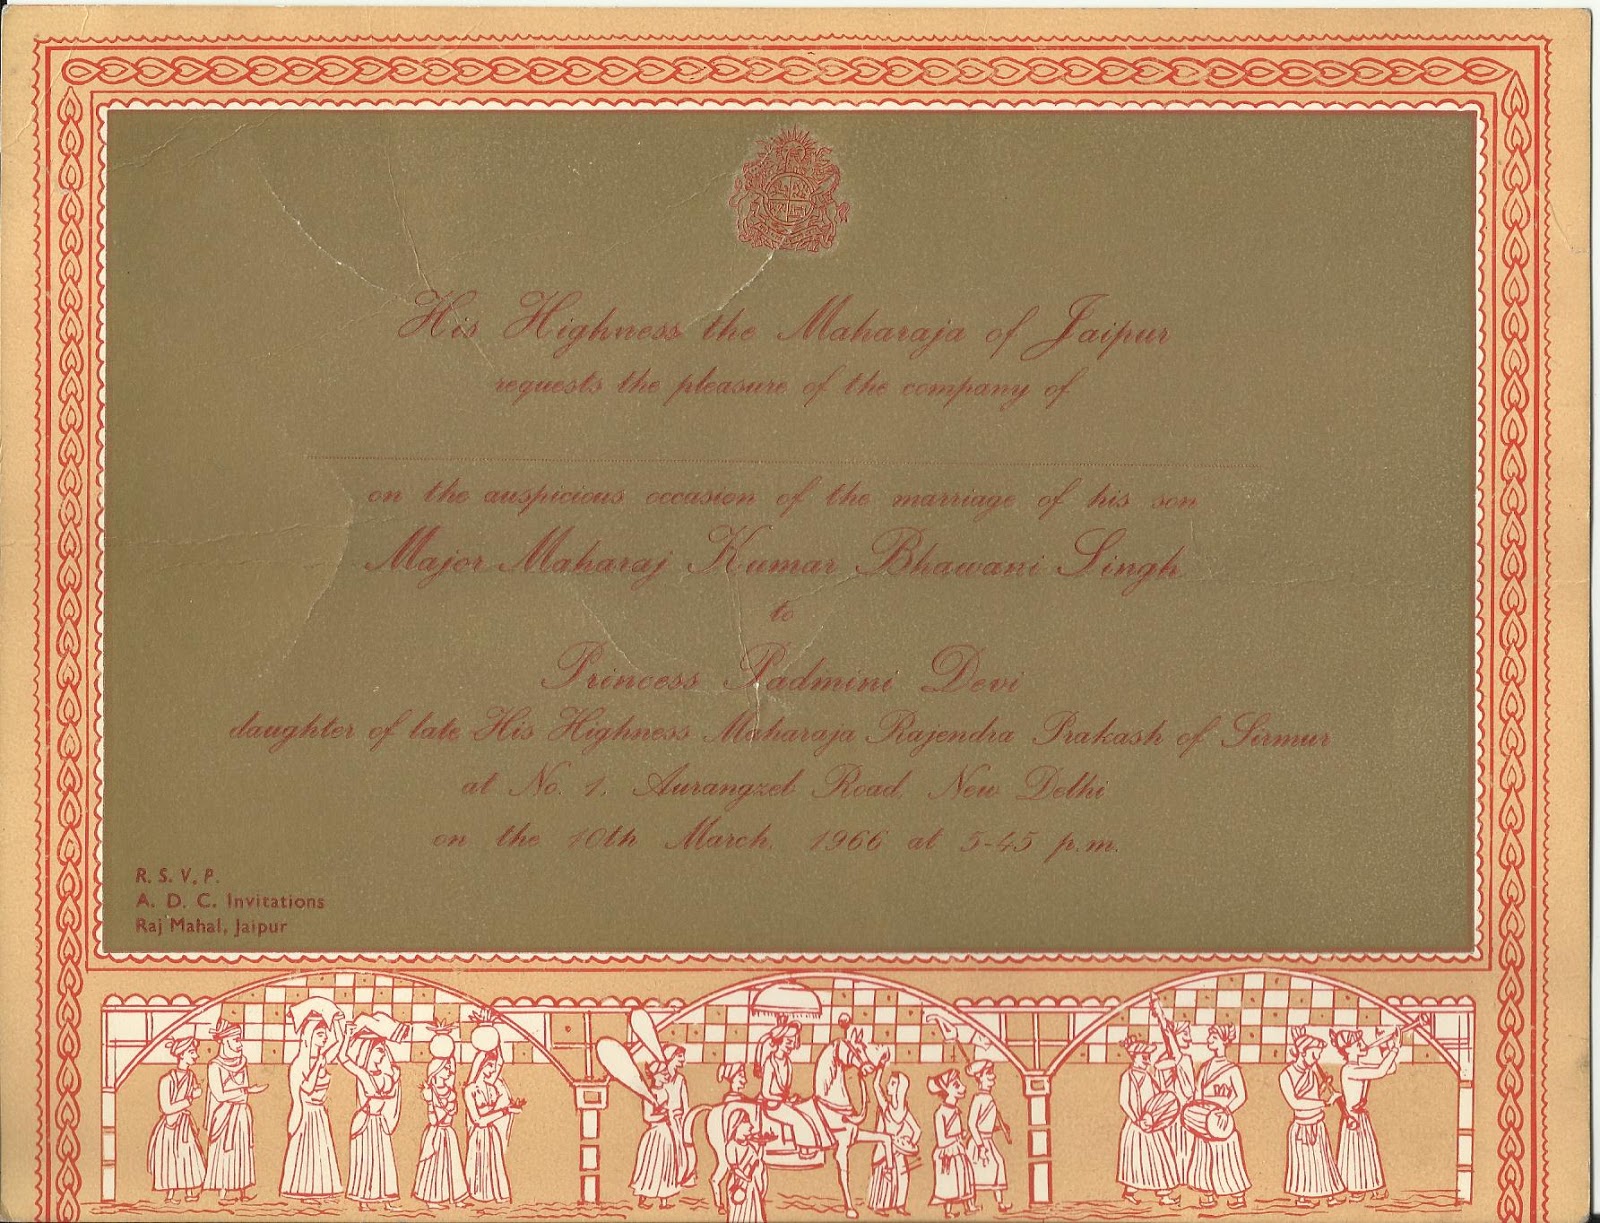 His Highness the Maharaja of Jaipur
requests the pleasure of the company of
on the auspicious occasion of the marriage of his son
Major Maharaj Kumar Bhawani Singh
to
Princess Padmini Devi
daughter of late His Highness Maharaja Rajendra Prakash of Sirmur
at No. 1, Aurangzeb Road, New Delhi
on the 10th March, 1966 at 5-45 p.m.
R. S. V. P.
A. D. C. Invitations
Raj Mahal, Jaipur